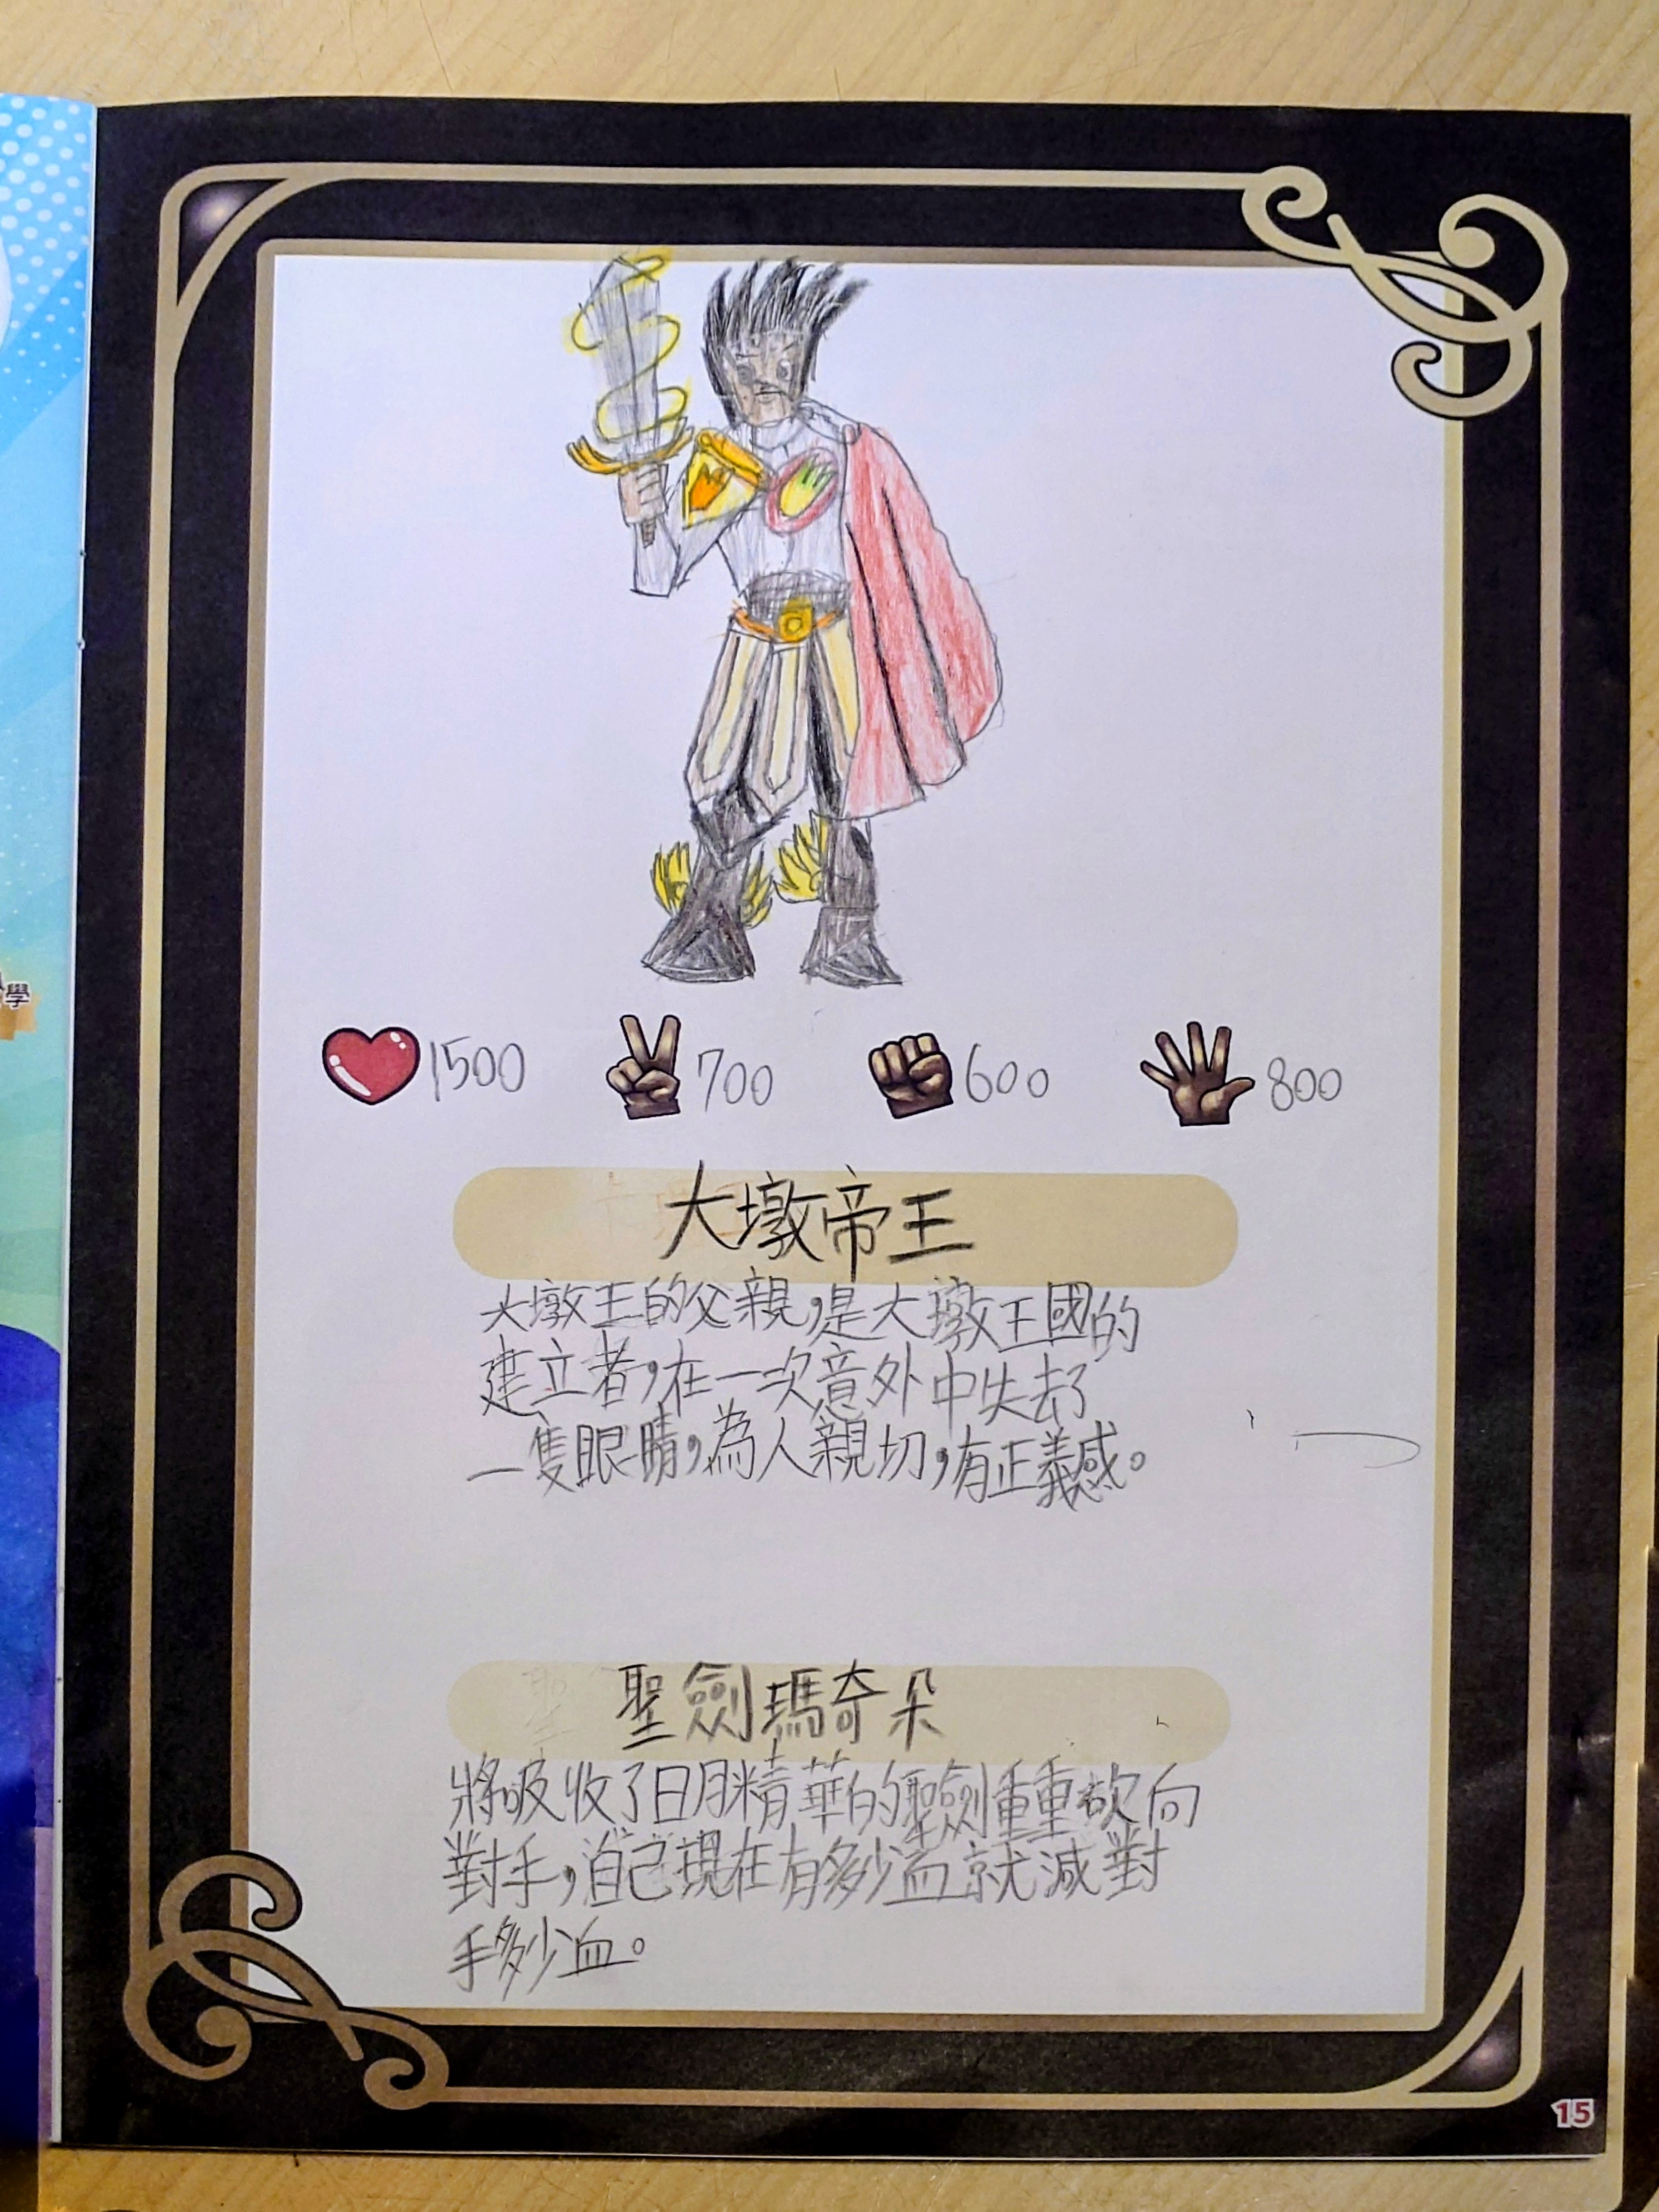 學
1500 700 600 800
大墩帝王
大墩王的父親,是大墩王國的
建立者,在一次意外中失去了
一隻眼睛,為人親切,有正義感。
聖劍瑪奇朵
將吸收了日月精華的聖劍重重砍向
對手,自己現在有多少血就減對
手多少血。
15